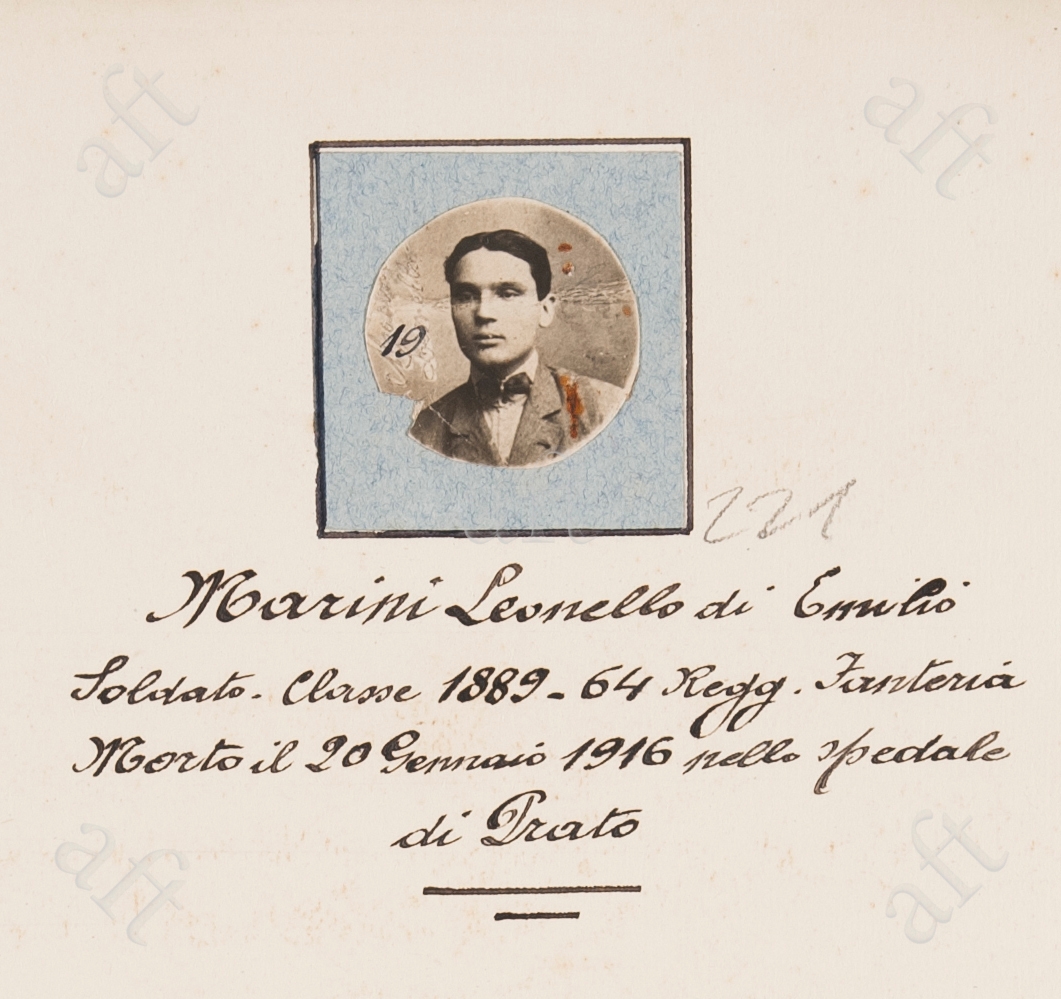 aft
aft
19
221
Marini Leonello di Emilio
Soldato - Classe 1889 - 64 Regg. Fanteria
Morto il 20 Gennaio 1916 nello spedale
di Prato
aft
aft